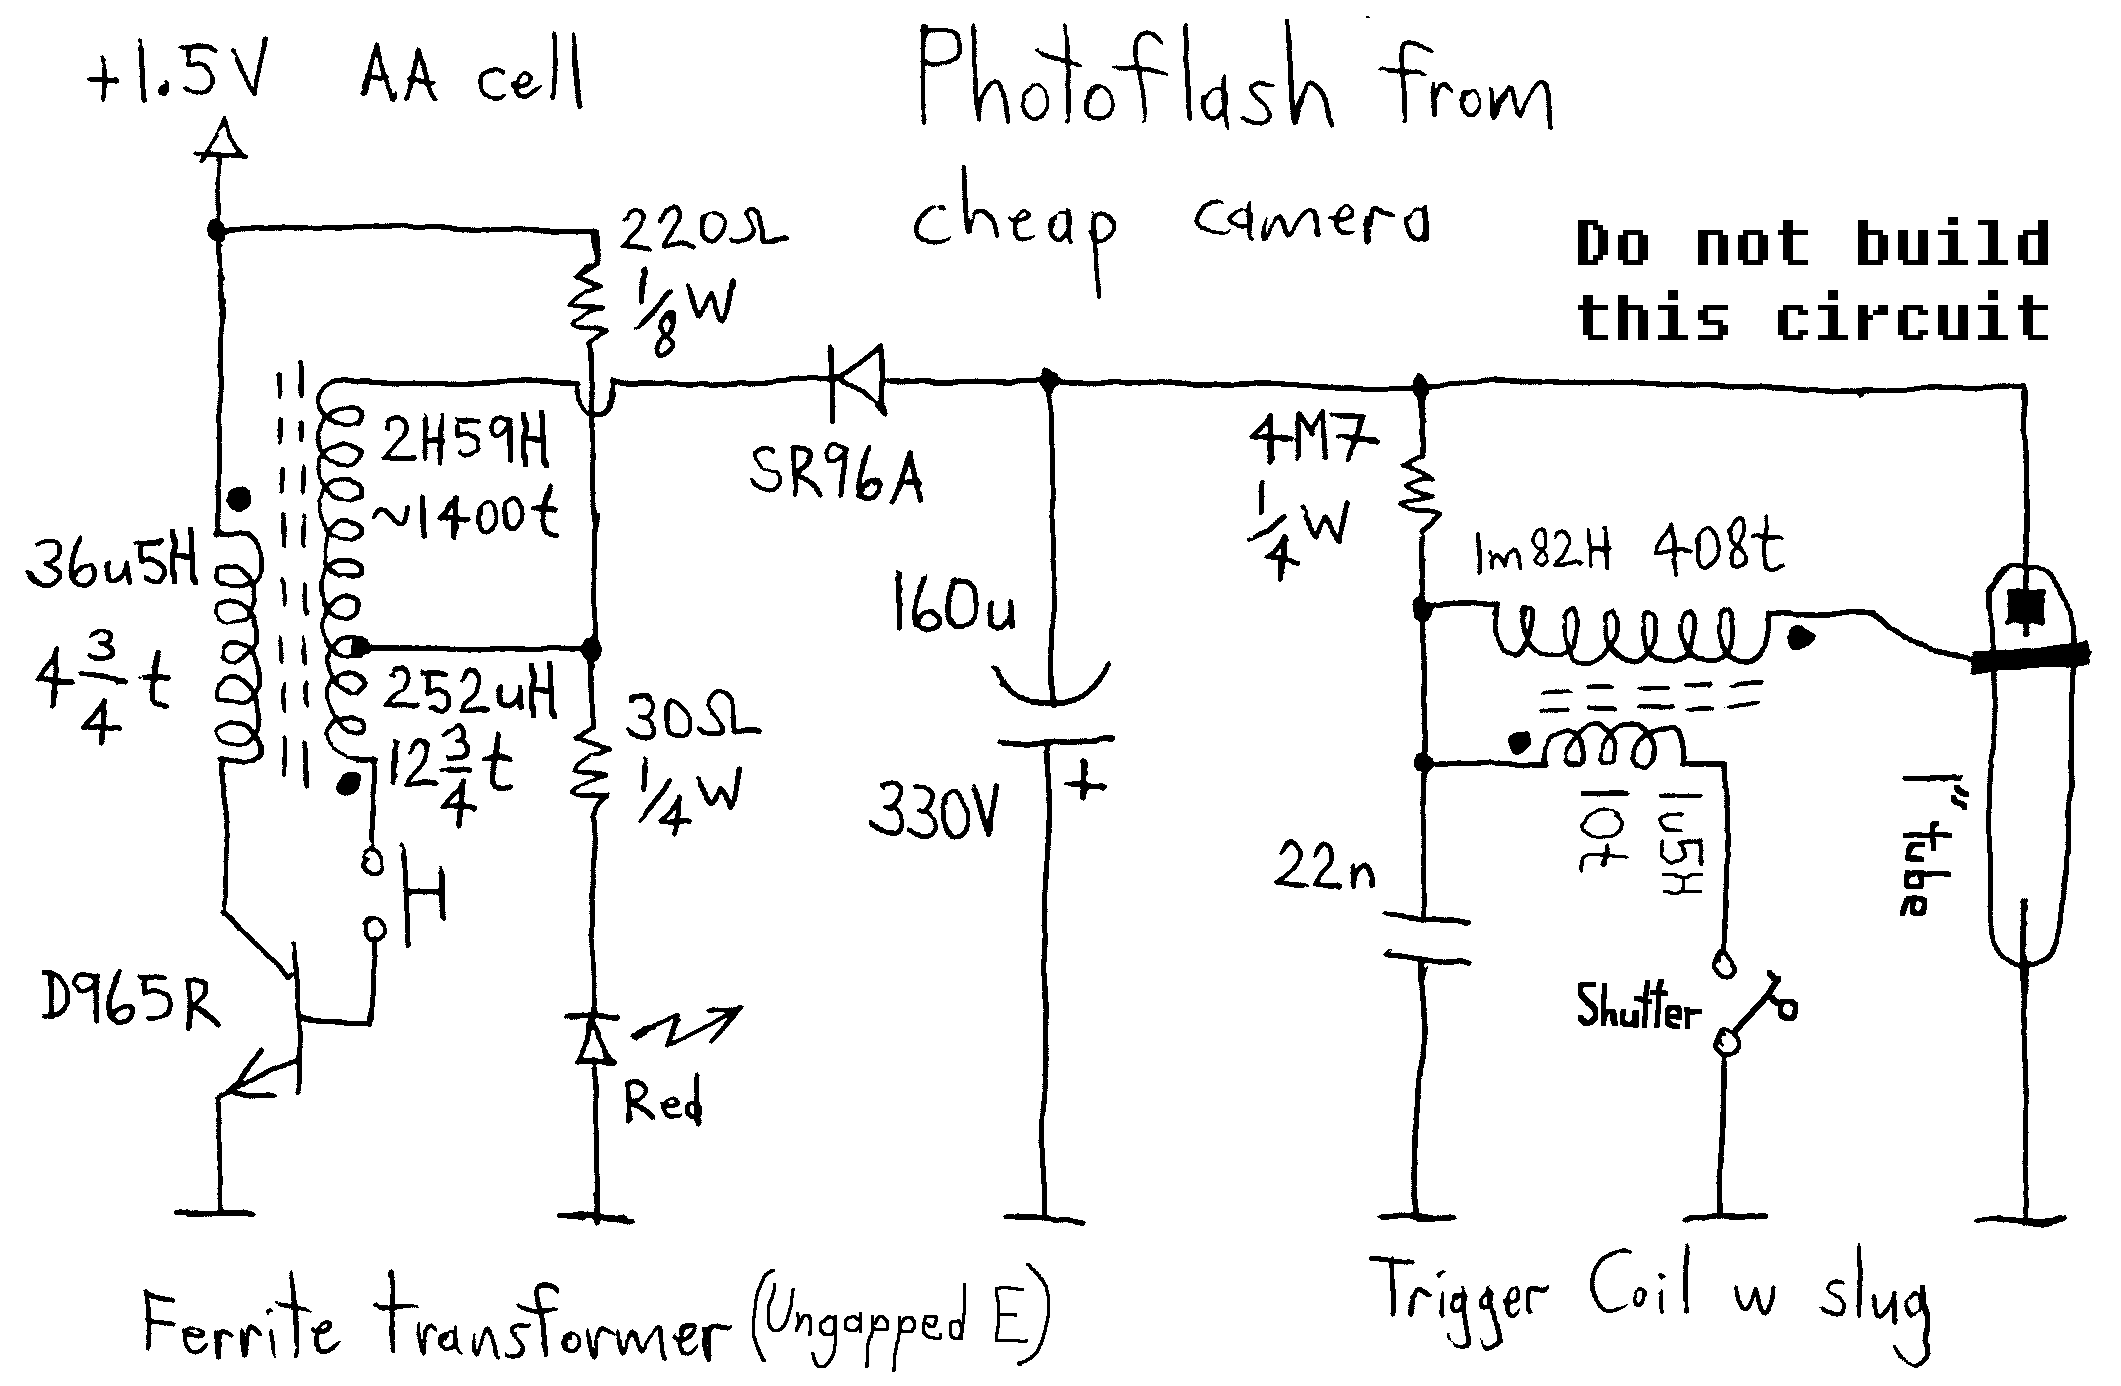 +1.5V AA cell
Photoflash from
cheap camera
Do not build
this circuit
220Ω
1/8 W
2H59H
~1400t
36u5H
4 3/4 t
252uH
12 3/4 t
30Ω
1/4 W
D965R
Red
SR96A
160u
330V
+
4M7
1/4 W
1m82H 408t
1u5H
10t
22n
Shutter
1" tube
Ferrite transformer (Ungapped E)
Trigger Coil w slug